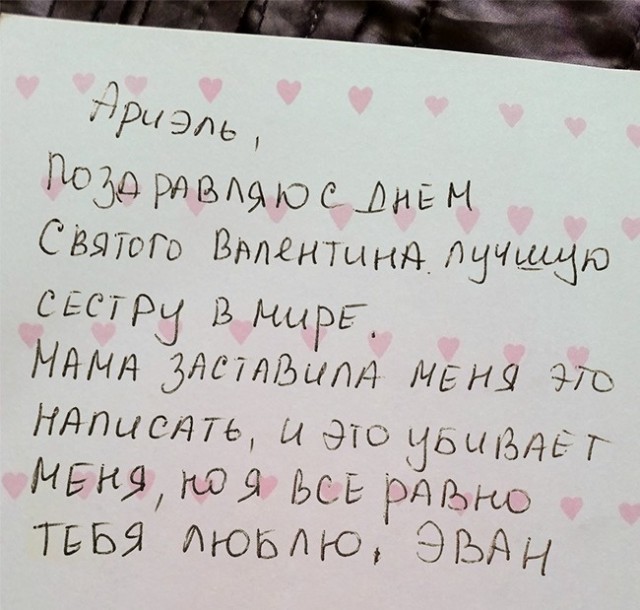 Ариэль,
ПОЗДРАВЛЯЮ С ДНЕМ
СВЯТОГО ВАЛЕНТИНА ЛУЧШУЮ
СЕСТРУ В МИРЕ.
МАМА ЗАСТАВИЛА МЕНЯ ЭТО
НАПИСАТЬ, И ЭТО УБИВАЕТ
МЕНЯ, НО Я ВСЕ РАВНО
ТЕБЯ ЛЮБЛЮ, ЭВАН